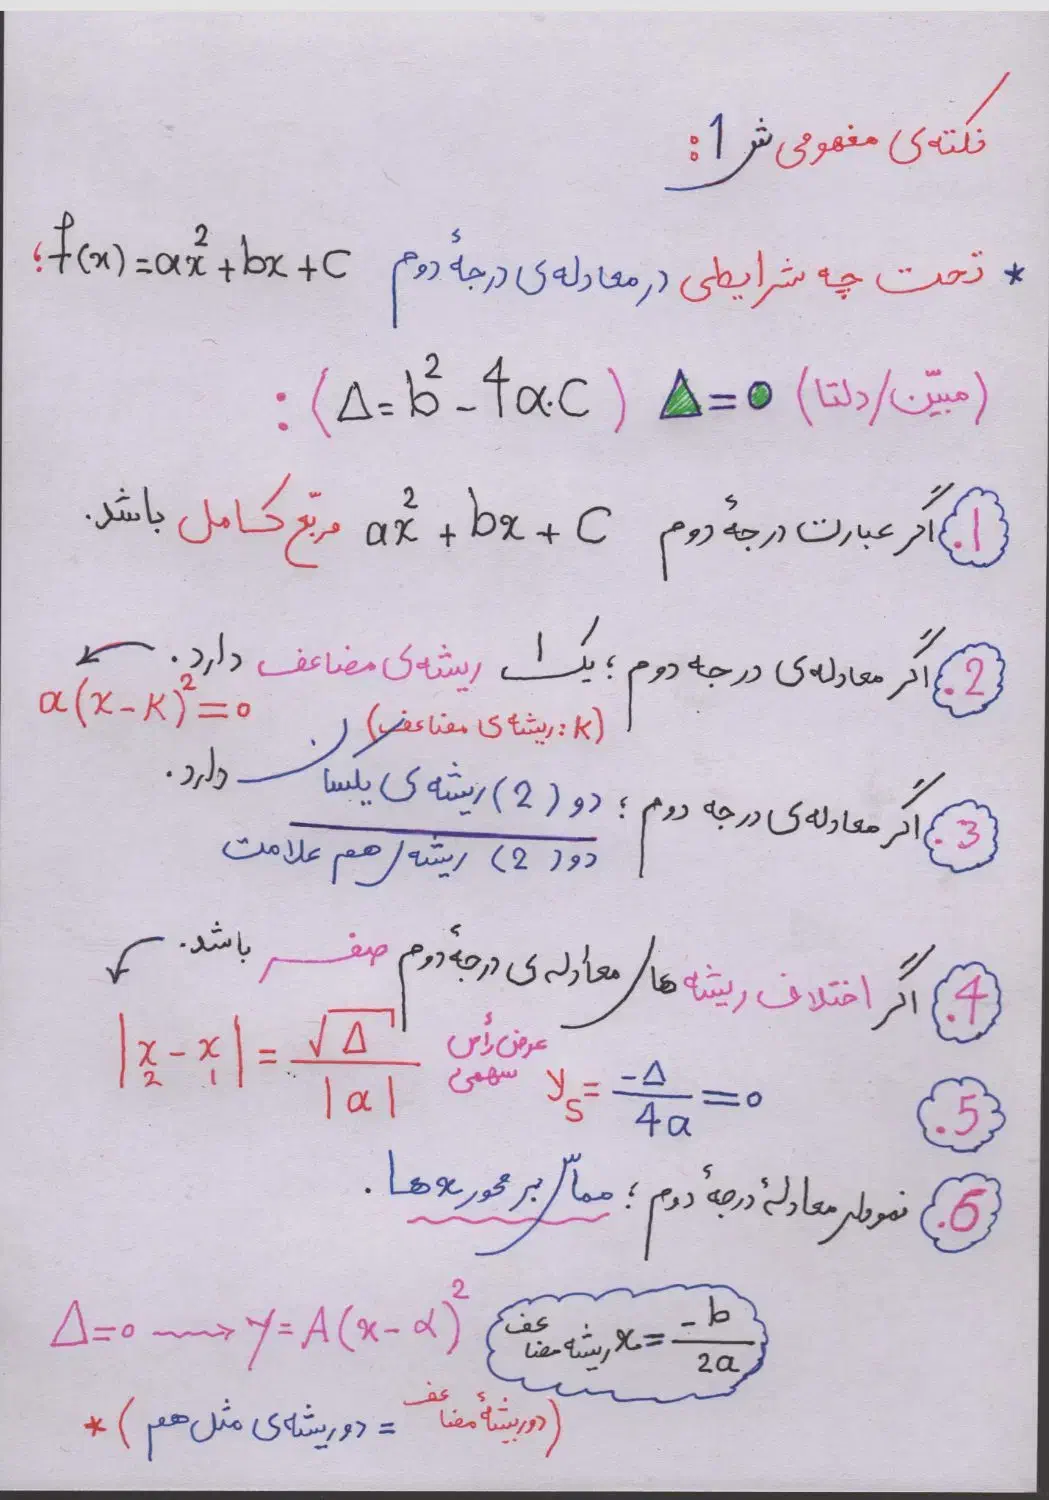 نکته‌ی مفهومی ش 1:
* تحت چه شرایطی در معادله‌ی درجهٔ دوم f(x)=ax²+bx+c؛
(مبیّن/دلتا) Δ=0 (Δ=b²-4a.c):
1. اگر عبارت درجهٔ دوم ax²+bx+c مربّع کامل باشد.
2. اگر معادله‌ی درجه دوم؛ یک 1 ریشه‌ی مضاعف دارد.
a(x-k)²=0
(k: ریشه‌ی مضاعف)
3. اگر معادله‌ی درجه دوم؛ دو (2) ریشه‌ی یکسان دارد.
دو (2) ریشه هم علامت
4. اگر اختلاف ریشه‌های معادله‌ی درجهٔ دوم صفر باشد.
|x₂-x₁|=√Δ/|a|
5. عرض رأس سهمی yₛ=-Δ/4a=0
6. نمودار معادلهٔ درجهٔ دوم؛ مماس بر محور xها.
Δ=0 ⟿ y=A(x-α)²
ریشه مضاعف x=-b/2a
(دو ریشهٔ مضاعف = دو ریشه‌ی مثل هم) *